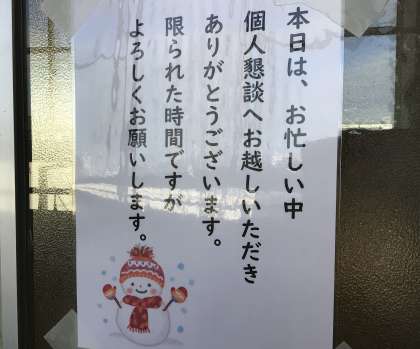 本日は、お忙しい中
個人懇談へお越しいただき
ありがとうございます。
限られた時間ですが
よろしくお願いします。